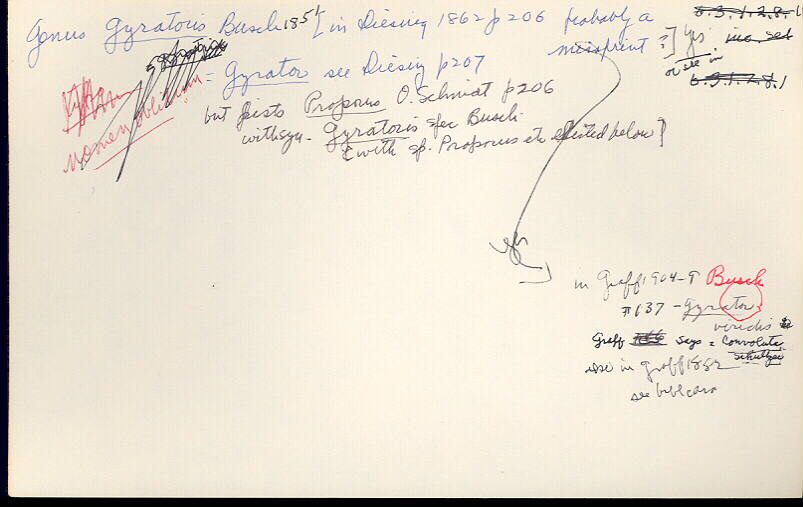 Genus Gyratoris Busch 1851 [in Diesing 1862 p 206 probably a
misprint?] yes
6.3.1.2.8.
or see in
6.3.1.2.8.1
= Gyrator see Diesing p207
nomen oblitum
but lists Proporus O. Schmidt p 206
with syn. Gyratoris spec Busch
(with sp. Proporus etc listed below]
yes
in Graff 1904-9 Busch
#137 - Gyrator
viridis
Graff says = Convoluta
Schultzei
also in Graff 1882
see bibl card